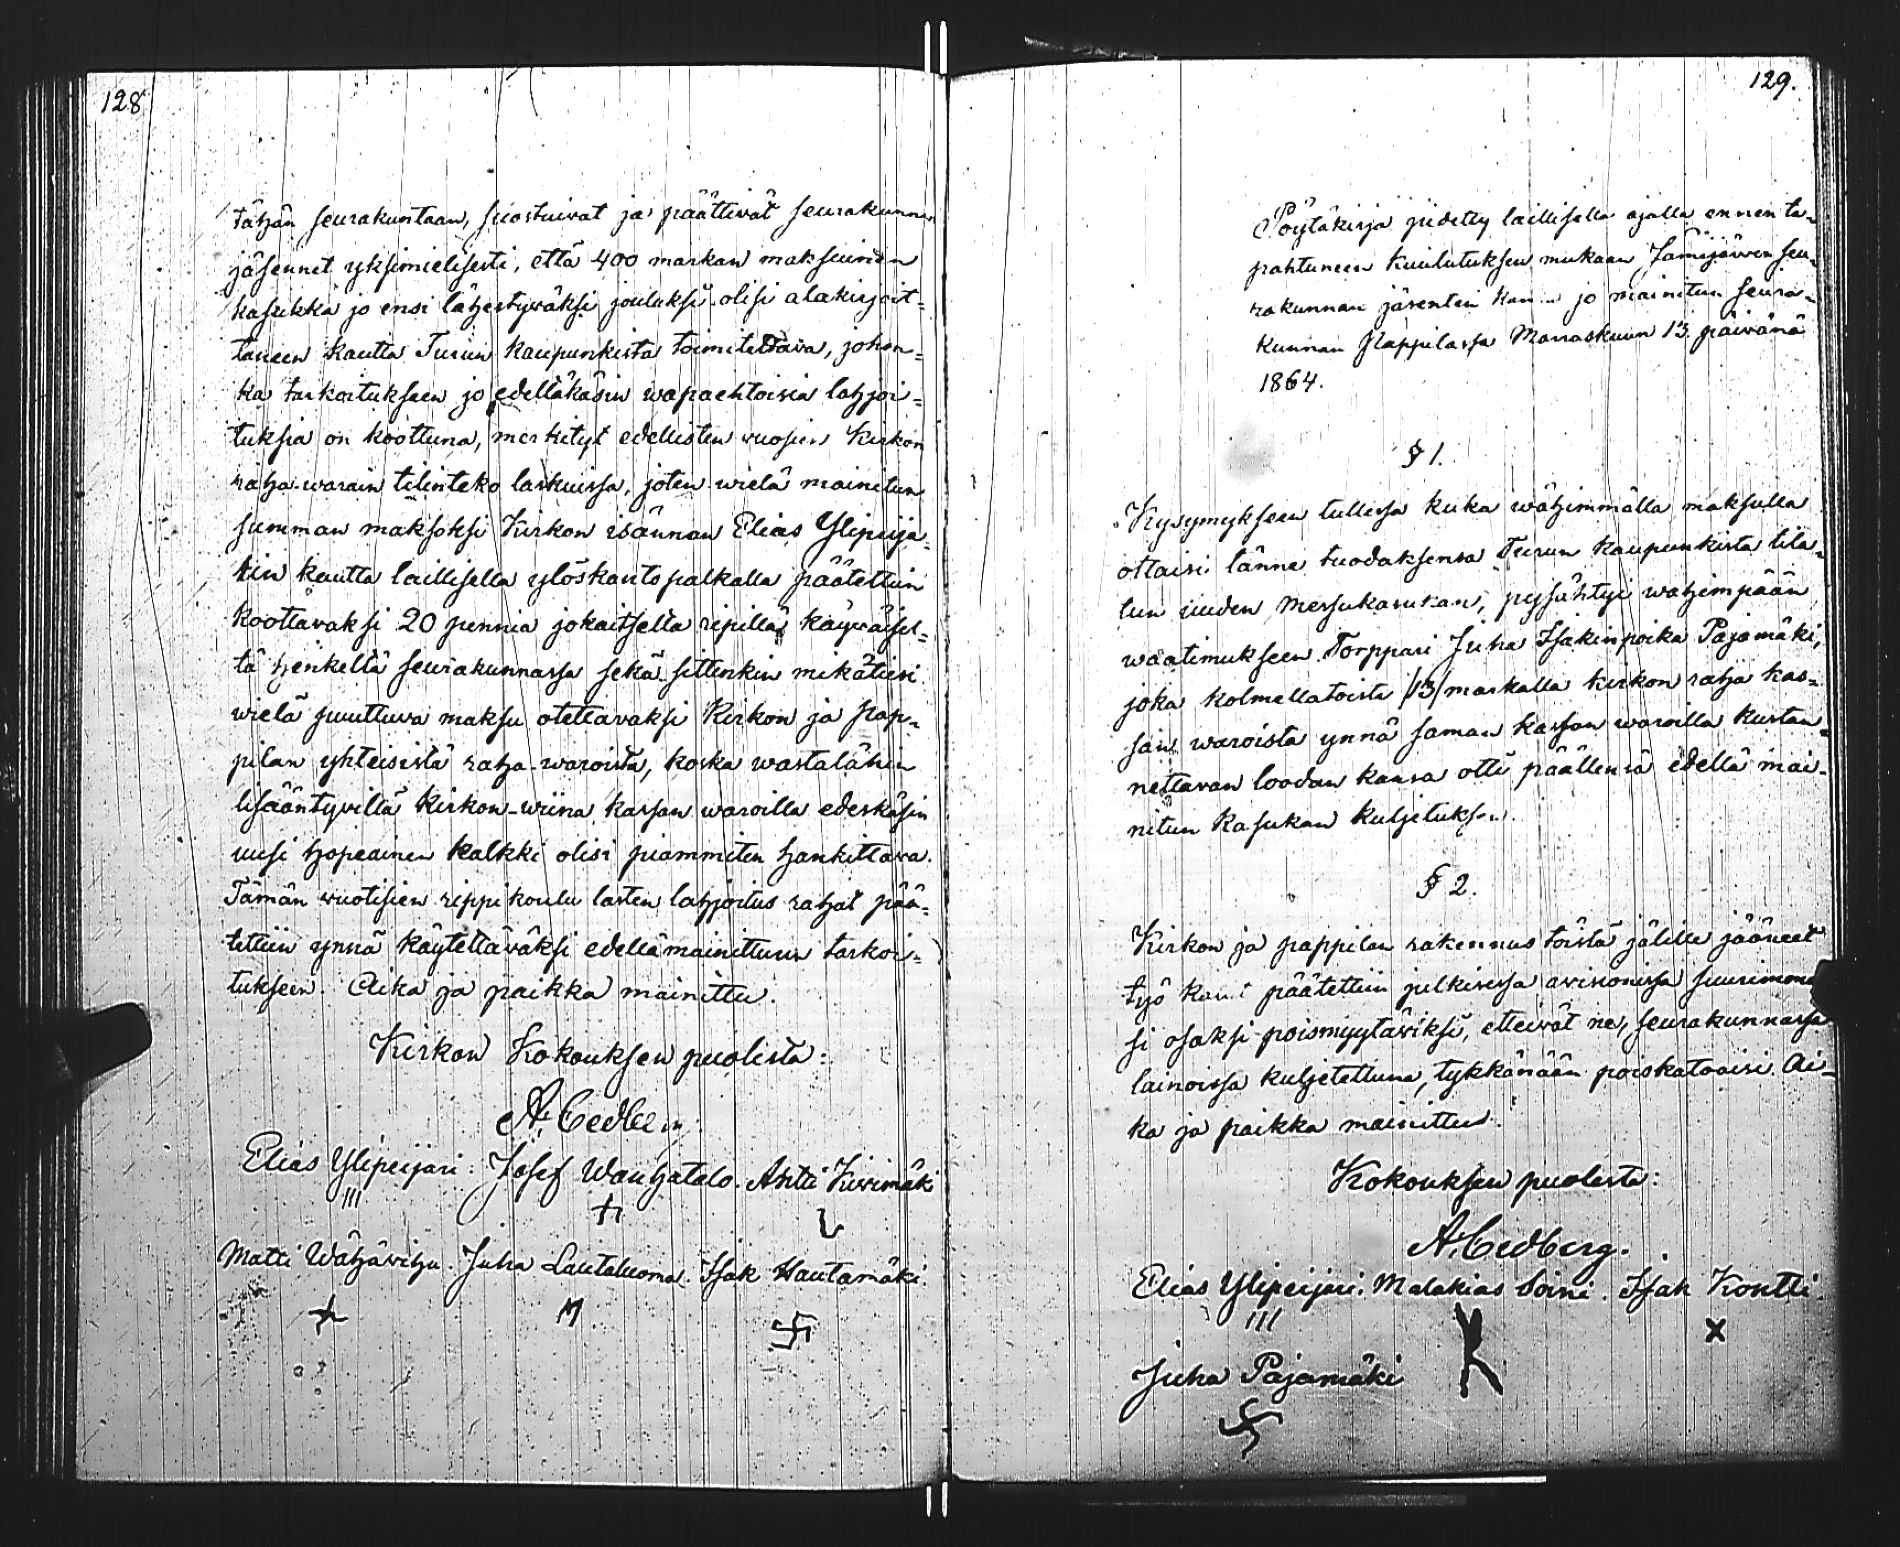 128
tähän seurakuntaan, suostuivat ja päättivät seurakunnan
jäsennet yksimielisesti, että 400 markan maksuinen
kasukka jo ensi lähestyväksi jouluksi olisi alakirjoit-
taneen kautta Turun kaupunkista toimitettava, johon-
ka tarkoitukseen jo edeltäkäsin wapaehtoisia lahjoi-
tuksia on koottuna, merkityt edellisten vuosien Kirkon
raha-warain tilinteko laskuissa, joten wielä mainitun
summan maksoksi Kirkon isännän Elias Ylipeija-
rin kautta laillisella ylöskanto palkalla päätettiin
koottavaksi 20 penniä jokaitselta ripillä käyväisel-
tä henkeltä seurakunnassa sekä sittenkin mikä
wielä puuttuva maksu otettavaksi Kirkon ja pap-
pilan yhteisistä raha-waroista, koska wastalähin
lisääntyvillä Kirkon-wiina kassan waroilla edeskäsin
uusi hopeainen kalkki olisi piammiten hankittava.
Tämän vuotisien rippikoulu lasten lahjoitus rahat pää-
tettiin ynnä käytettäväksi edellämainittuun tarkoi-
tukseen. Aika ja paikka mainittu.
Kirkon Kokouksen puolesta:
A. Cedberg.
Elias Ylipeijari. Josef Wanhatalo. Antti Kiwimäki
III
Matti Wähäwihu. Juha Lautaluoma. Isak Hautamäki.
129.
Pöytäkirja pidetty laillisella ajalla ennen ta-
pahtuneen kuulutuksen mukaan Jämijärven seu-
rakunnan jäsenten kan jo mainitun seura-
kunnan pappilassa Marraskuun 13. päivänä
1864.
§ 1.
Kysymykseen tullessa kuka wähimmällä maksulla
ottaisi tänne tuodaksensa Turun kaupunkista tila-
tun uuden messukasukan, pysähtyi wähimpään
waatimukseen Torppari Juha Isakinpoika Pajamäki,
joka kolmellatoista /13/ markalla kirkon raha kas-
san waroista ynnä saman kassan waroilla kustan-
nettavan loodan kansa otti päällensä edellä mai-
nitun kasukan kuljetuksen.
§ 2.
Kirkon ja pappilan rakennus töistä jälille jääneet
työ kalut päätettiin julkisessa avisionissa suurimmak
si osaksi poismyytäviksi, etteivät ne, seurakunnassa
lainoissa kuljetettuna, tykkänään poiskatoaisi. Ai-
ka ja paikka mainittu.
Kokouksen puolesta:
A. Cedberg.
Elias Ylipeijari. Malakias Soini. Isak Kontti
III K X
Juha Pajamäki